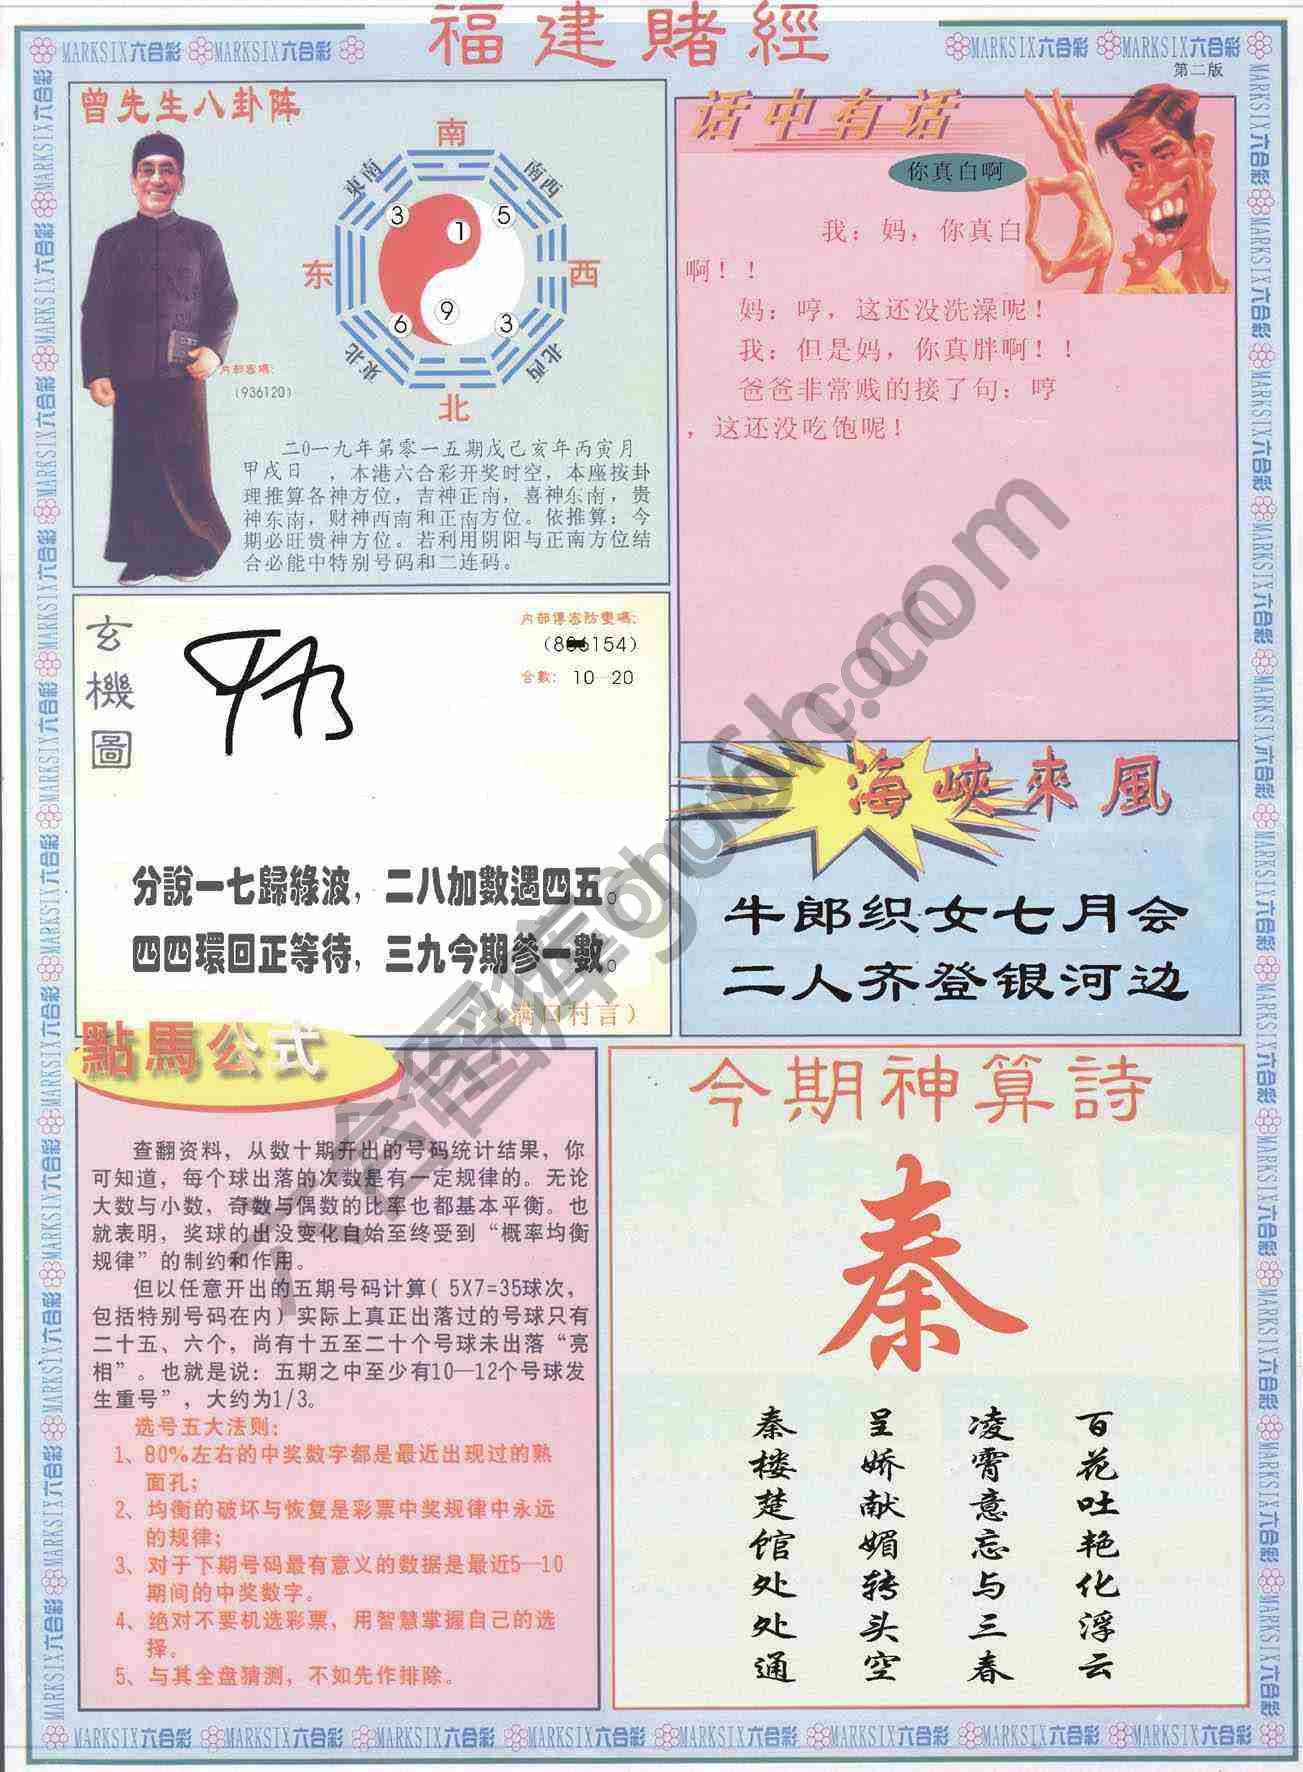 福建賭經
第二版
MARKSIX六合彩 MARKSIX六合彩
MARKSIX六合彩 MARKSIX六合彩
曾先生八卦阵
南
東南
南西
3
1
5
东
西
6
9
3
東北
北西
北
内部密碼:
(936120)
二0一九年第零一五期戊己亥年丙寅月
甲戌日 ，本港六合彩开奖时空，本座按卦
理推算各神方位，吉神正南，喜神东南，贵
神东南，财神西南和正南方位。依推算：今
期必旺贵神方位。若利用阴阳与正南方位结
合必能中特别号码和二连码。
话中有话
你真白啊
我：妈，你真白
啊！！
妈：哼，这还没洗澡呢！
我：但是妈，你真胖啊！！
爸爸非常贱的接了句：哼
，这还没吃饱呢！
玄機圖
内部傳密防變碼:
154)
合數: 10—20
分說一七歸綠波，二八加數遇四五。
四四環回正等待，三九今期參一數。
（满口村言）
海峽來風
牛郎织女七月会
二人齐登银河边
點馬公式
查翻资料，从数十期开出的号码统计结果，你
可知道，每个球出落的次数是有一定规律的。无论
大数与小数，奇数与偶数的比率也都基本平衡。也
就表明，奖球的出没变化自始至终受到“概率均衡
规律”的制约和作用。
但以任意开出的五期号码计算( 5X7=35球次，
包括特别号码在内)实际上真正出落过的号球只有
二十五、六个，尚有十五至二十个号球未出落“亮
相”。也就是说：五期之中至少有10—12个号球发
生重号”，大约为1/3。
选号五大法则：
1、80%左右的中奖数字都是最近出现过的熟
面孔；
2、均衡的破坏与恢复是彩票中奖规律中永远
的规律；
3、对于下期号码最有意义的数据是最近5—10
期间的中奖数字。
4、绝对不要机选彩票，用智慧掌握自己的选
择。
5、与其全盘猜测，不如先作排除。
今期神算詩
秦
百花吐艳化浮云
凌霄意忘与三春
呈娇献媚转头空
秦楼楚馆处处通
六合图库@gouwuhc.com